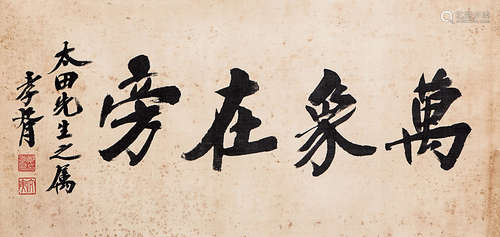 萬象在旁
太田先生之属
孝胥